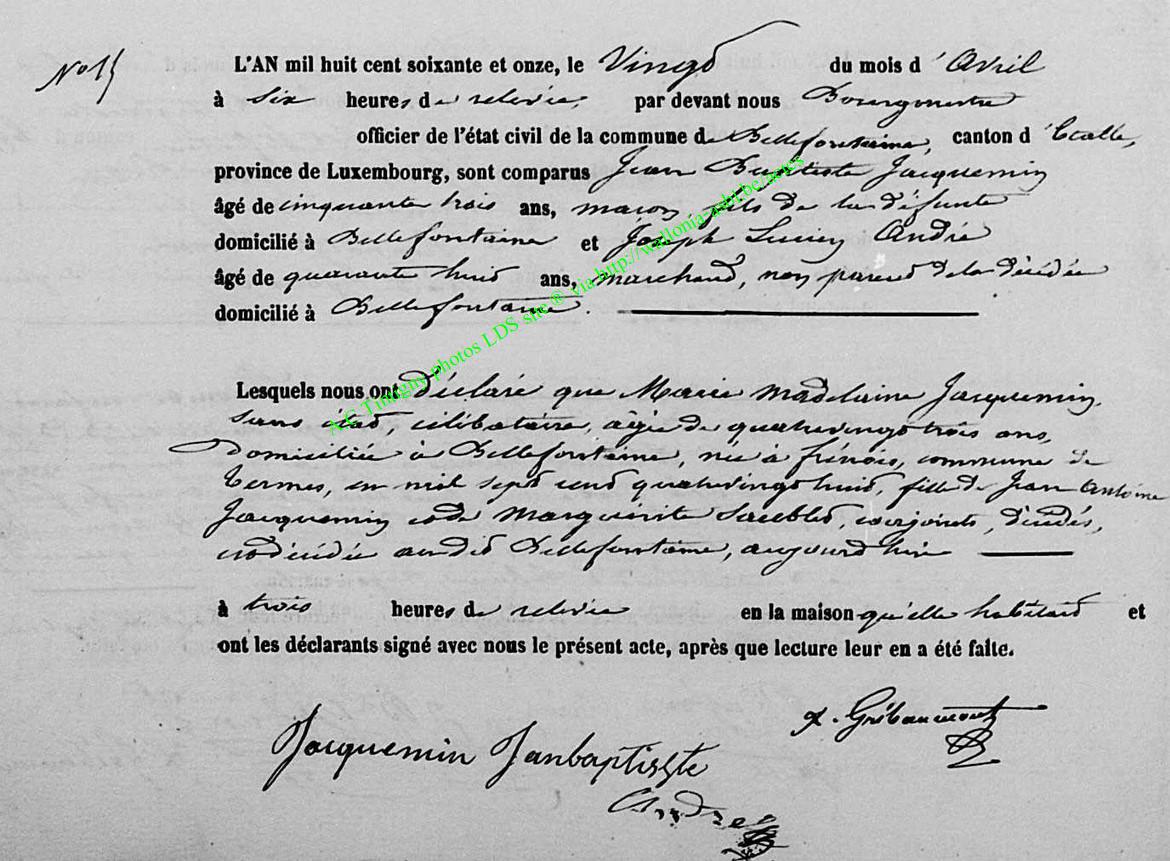 No 15
L'AN mil huit cent soixante et onze, le Vingt du mois d'Avril
à six heures de relevée, par devant nous Bourgmestre
officier de l'état civil de la commune de Bellefontaine, canton d'Etalle,
province de Luxembourg, sont comparus Jean Baptiste Jacquemin
âgé de cinquante trois ans, maçon, fils de la défunte
domicilié à Bellefontaine et Joseph Lucien André
âgé de quarante huit ans, marchand, non parent de la décédée
domicilié à Bellefontaine.
A.C Tintigny photos LDS site ® via http://wallonia-asbl.be/actes
Lesquels nous ont déclaré que Marie Madelaine Jacquemin,
sans état, célibataire, agée de quatrevingt trois ans,
Domiciliée à Bellefontaine, née à frénois, commune de
Termes, en mil sept cent quatrevingt huit, fille de Jean Antoine
Jacquemin et de Marguerite, conjoints, décédés,
est décédée audit Bellefontaine, aujourd'hui
à trois heures de relevée en la maison qu'elle habitait et
ont les déclarants signé avec nous le présent acte, après que lecture leur en a été faite.
Gribaumont
Jacquemin Janbaptiste
André